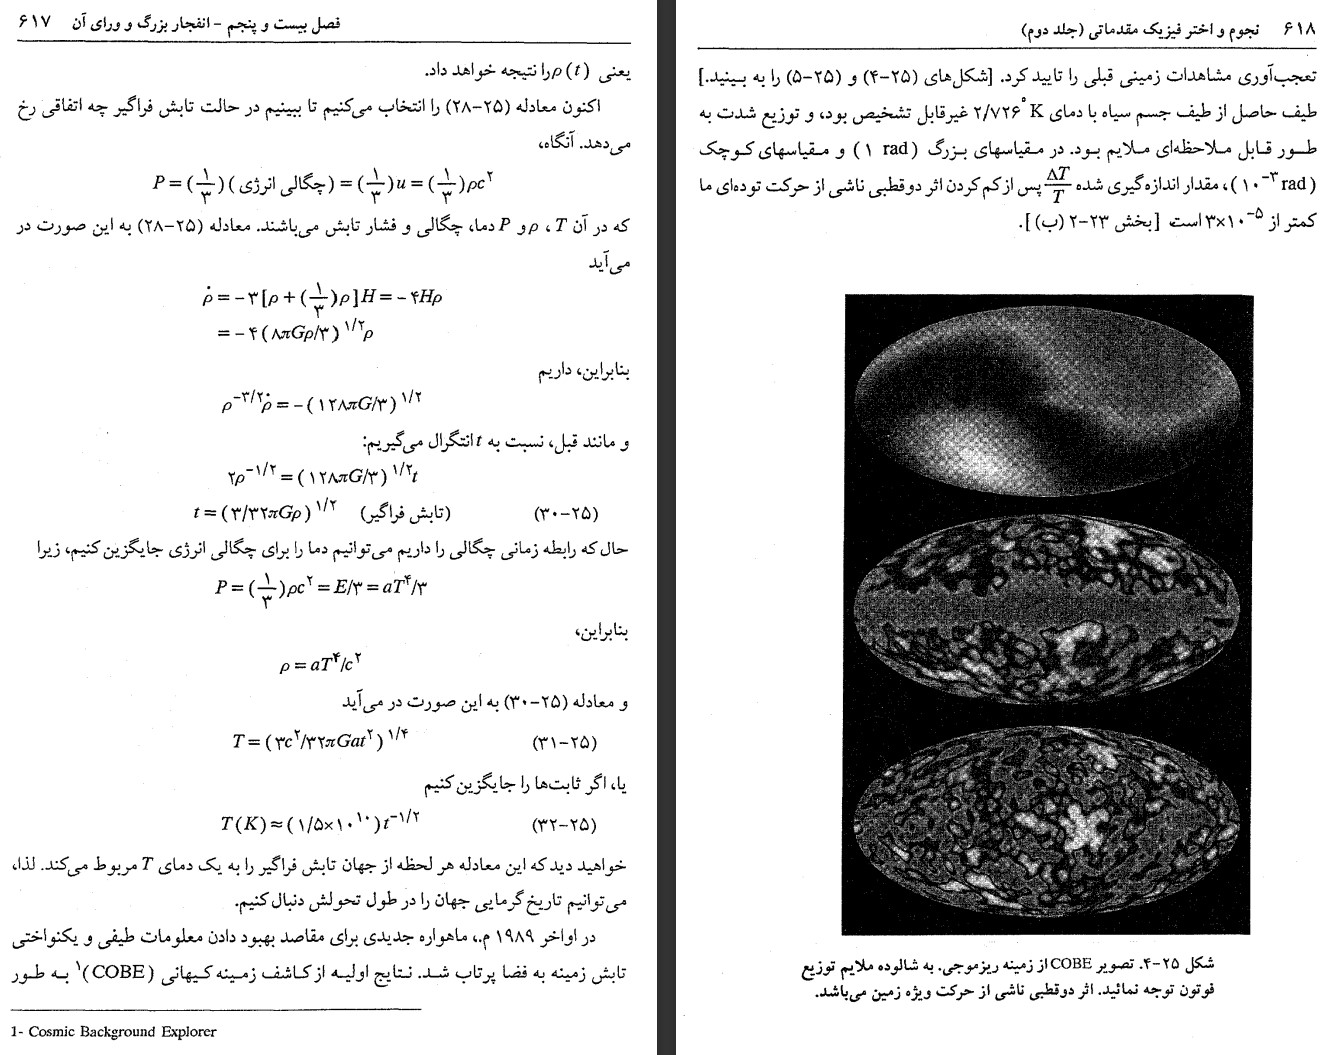 فصل بیست و پنجم – انفجار بزرگ و ورای آن ۶۱۷
یعنی ρ(t) را نتیجه خواهد داد.
اکنون معادله (۲۵–۲۸) را انتخاب می‌کنیم تا ببینیم در حالت تابش فراگیر چه اتفاقی رخ
می‌دهد. آنگاه،
P = (۱/۳) (چگالی انرژی) = (۱/۳)u = (۱/۳)ρc²
که در آن T ، ρ و P دما، چگالی و فشار تابش می‌باشند. معادله (۲۵–۲۸) به این صورت در
می‌آید
ρ̇ = – ۳ [ρ + (۱/۳)ρ] H = – ۴Hρ
= – ۴ (۸πGρ/۳)^۱/۲ ρ
بنابراین، داریم
ρ^–۳/۲ ρ̇ = – (۱۲۸πG/۳)^۱/۲
و مانند قبل، نسبت به t انتگرال می‌گیریم:
۲ρ^–۱/۲ = (۱۲۸πG/۳)^۱/۲ t
t = (۳/۳۲πGρ)^۱/۲ (تابش فراگیر) (۲۵–۳۰)
حال که رابطه زمانی چگالی را داریم می‌توانیم دما را برای چگالی انرژی جایگزین کنیم، زیرا
P = (۱/۳)ρc² = E/۳ = aT⁴/۳
بنابراین،
ρ = aT⁴/c²
و معادله (۲۵–۳۰) به این صورت در می‌آید
T = (۳c²/۳۲πGat²)^۱/۴ (۲۵–۳۱)
یا، اگر ثابت‌ها را جایگزین کنیم
T(K) ≈ (۱/۵×۱۰^۱۰) t^–۱/۲ (۲۵–۳۲)
خواهید دید که این معادله هر لحظه از جهان تابش فراگیر را به یک دمای T مربوط می‌کند. لذا،
می‌توانیم تاریخ گرمایی جهان را در طول تحولش دنبال کنیم.
در اواخر ۱۹۸۹ م.، ماهواره جدیدی برای مقاصد بهبود دادن معلومات طیفی و یکنواختی
تابش زمینه به فضا پرتاب شد. نتایج اولیه از کاشف زمینه کیهانی (COBE)۱ به طور
1- Cosmic Background Explorer
۶۱۸ نجوم و اختر فیزیک مقدماتی (جلد دوم)
تعجب‌آوری مشاهدات زمینی قبلی را تایید کرد. [شکل‌های (۲۵–۴) و (۲۵–۵) را به بینید.]
طیف حاصل از طیف جسم سیاه با دمای ۲/۷۲۶°K غیرقابل تشخیص بود، و توزیع شدت به
طور قابل ملاحظه‌ای ملایم بود. در مقیاسهای بزرگ (۱ rad) و مقیاسهای کوچک
(۱۰^–۳ rad)، مقدار اندازه‌گیری شده ΔT/T پس از کم کردن اثر دوقطبی ناشی از حرکت توده‌ای ما
کمتر از ۳×۱۰^–۵ است [بخش ۲۳–۲ (ب)].
شکل ۲۵–۴. تصویر COBE از زمینه ریزموجی. به شالوده ملایم توزیع
فوتون توجه نمائید. اثر دوقطبی ناشی از حرکت ویژه زمین می‌باشد.